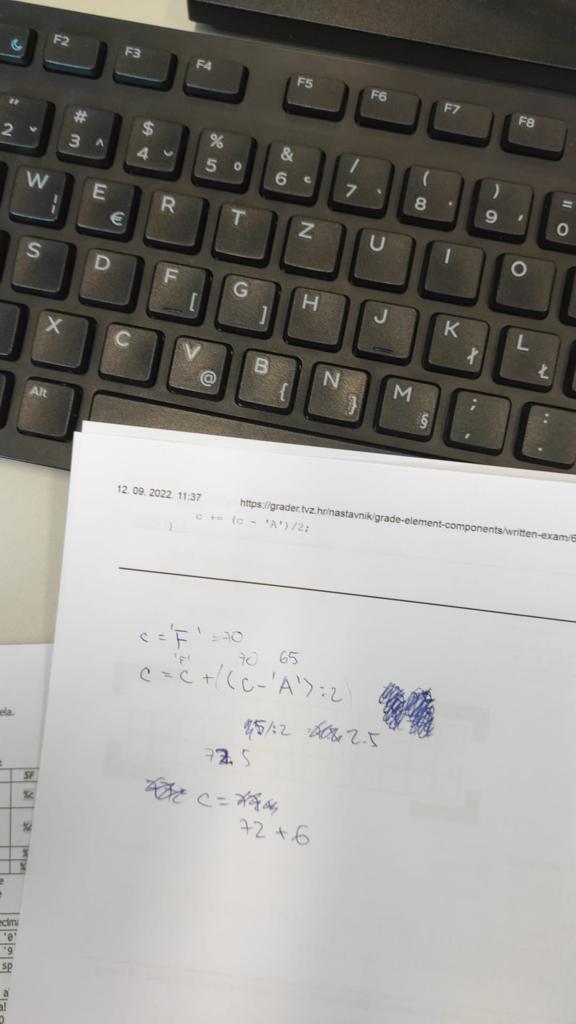 F2 F3 F4 F5 F6 F7 F8
" 2 ˇ # 3 ^ $ 4 ˘ % 5 ° & 6 ˛ / 7 ` ( 8 ˙ ) 9 ´ = 0
W | E € R T Z U I O
S D F [ G ] H J K ł L Ł
X C V @ B { N } M § ; , : .
Alt
12. 09. 2022. 11:37 https://grader.tvz.hr/nastavnik/grade-element-components/written-exam/6
c += (c - 'A')/2;
}
c = 'F' = 70
'F' 70 65
c = c + ((c - 'A') : 2)
5/:2 = 2.5
72.5
c =
72 + 6
ela.
SF
%c
ecima
'0'
'9
sp
a